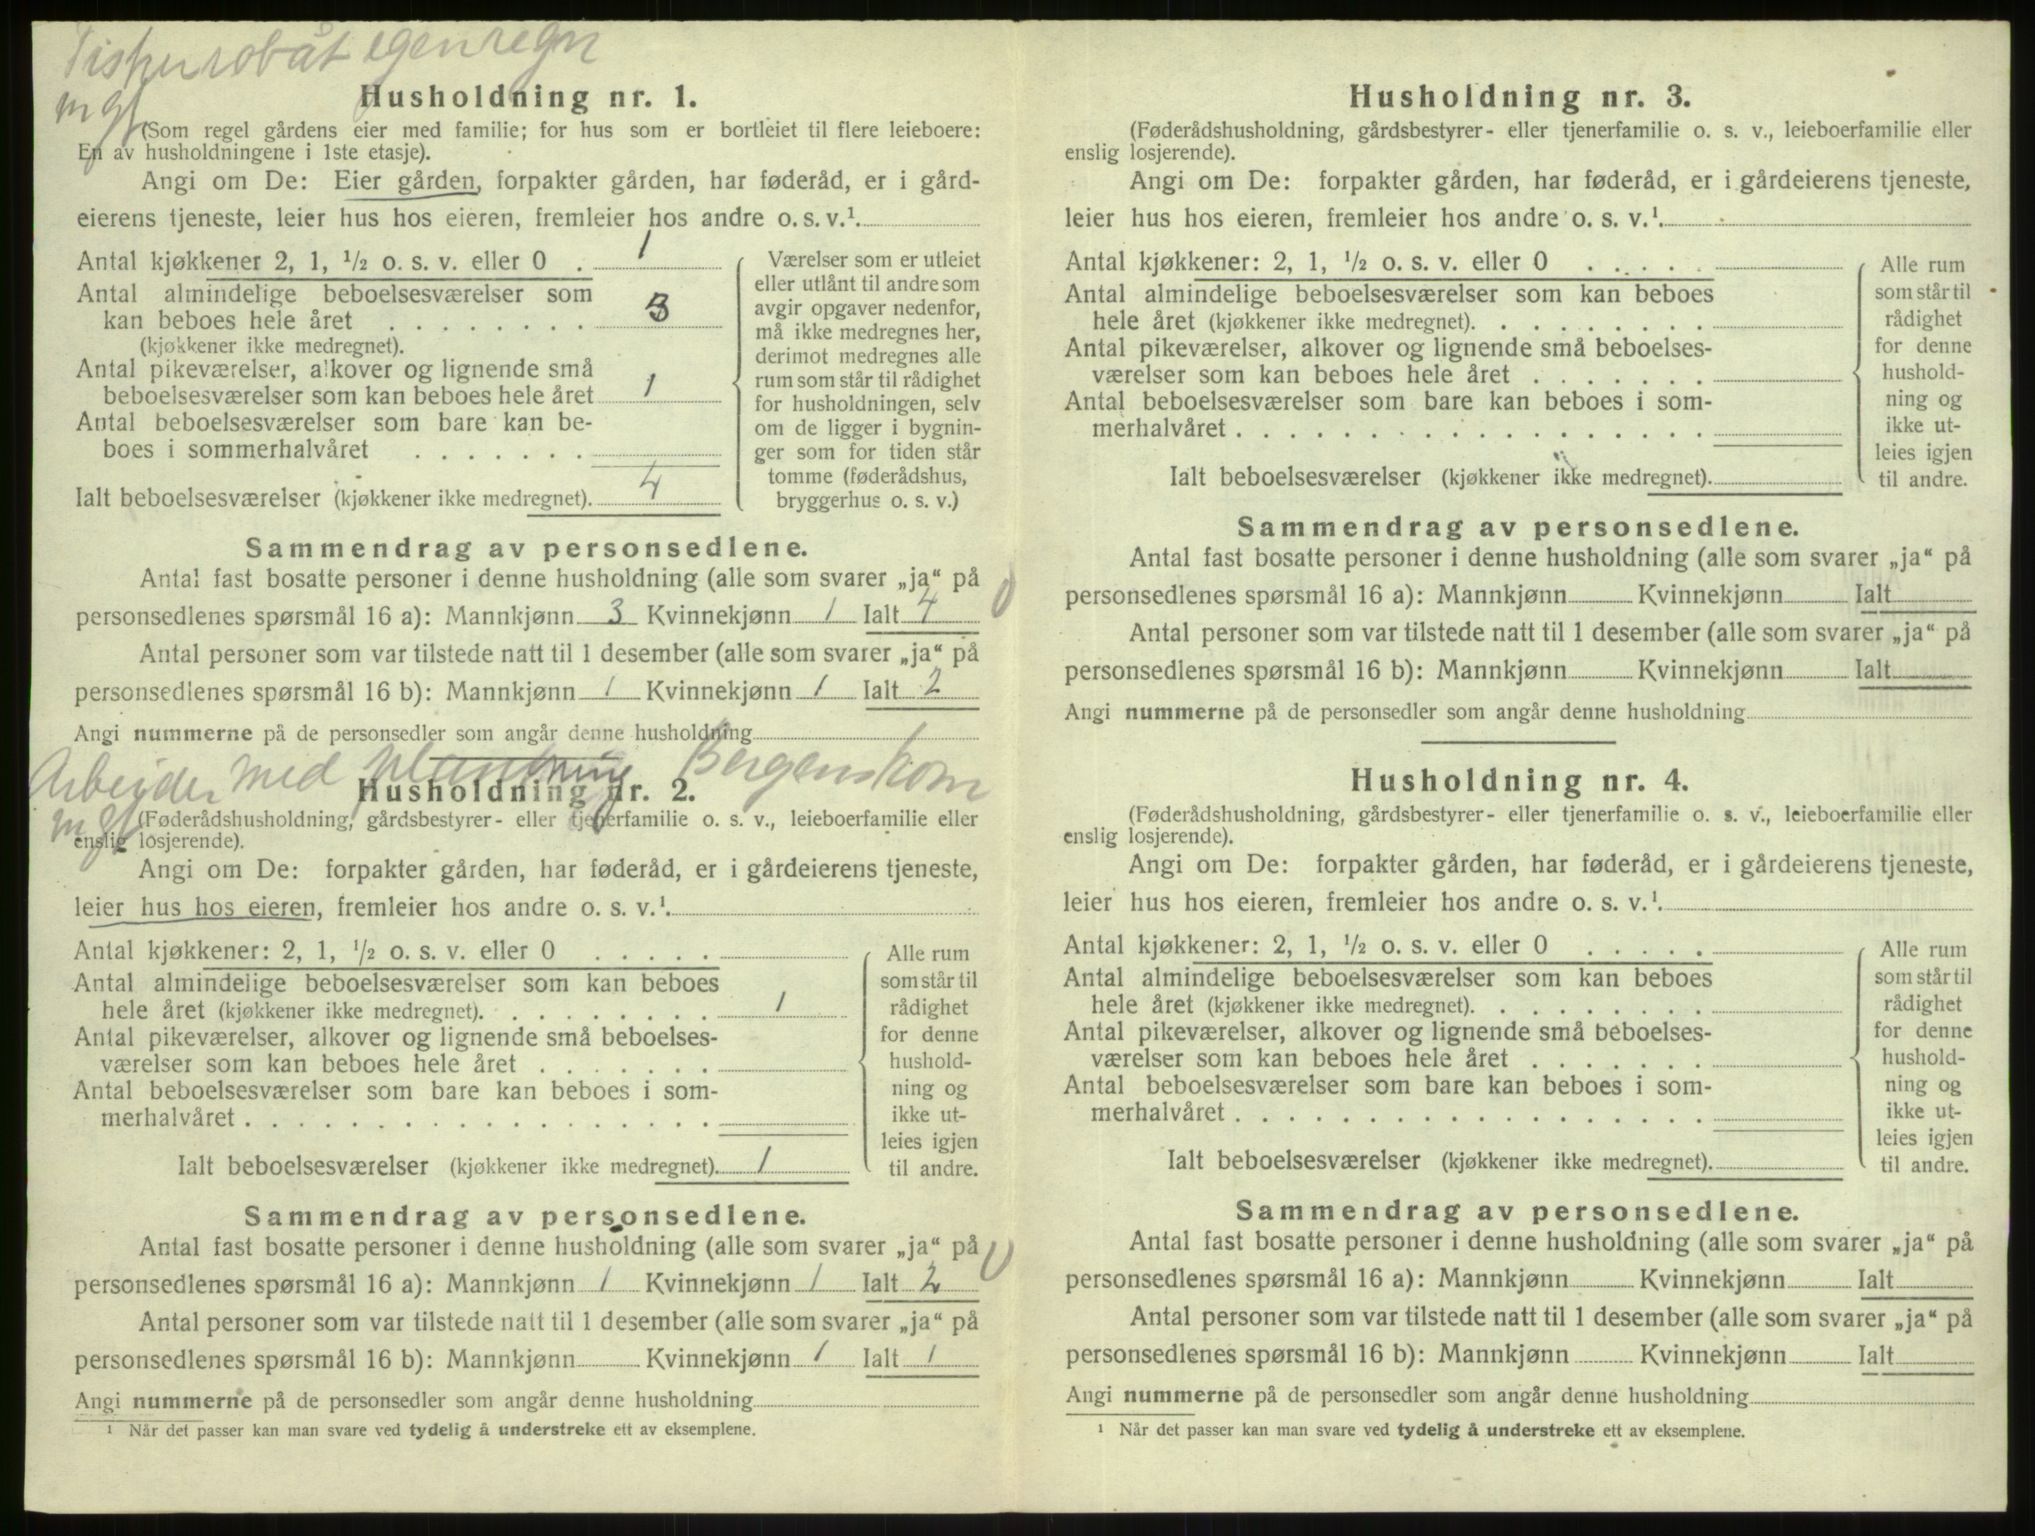 Fisker robåt egen regn
mgf
Husholdning nr. 1.
(Som regel gårdens eier med familie; for hus som er bortleiet til flere leieboere:
En av husholdningene i 1ste etasje).
Angi om De: Eier gården, forpakter gården, har føderåd, er i gård-
eierens tjeneste, leier hus hos eieren, fremleier hos andre o. s. v.¹
Antal kjøkkener 2, 1, ½ o. s. v. eller 0 . 1
Antal almindelige beboelsesværelser som
kan beboes hele året . . . . . . . . 3
(kjøkkener ikke medregnet).
Antal pikeværelser, alkover og lignende små
beboelsesværelser som kan beboes hele året 1
Antal beboelsesværelser som bare kan be-
boes i sommerhalvåret . . . . . . .
Ialt beboelsesværelser (kjøkkener ikke medregnet). 4
Værelser som er utleiet
eller utlånt til andre som
avgir opgaver nedenfor,
må ikke medregnes her,
derimot medregnes alle
rum som står til rådighet
for husholdningen, selv
om de ligger i bygnin-
ger som for tiden står
tomme (føderådshus,
bryggerhus o. s. v.)
Sammendrag av personsedlene.
Antal fast bosatte personer i denne husholdning (alle som svarer „ja“ på
personsedlenes spørsmål 16 a): Mannkjønn 3 Kvinnekjønn 1 Ialt 4
Antal personer som var tilstede natt til 1 desember (alle som svarer „ja“ på
personsedlenes spørsmål 16 b): Mannkjønn 1 Kvinnekjønn 1 Ialt 2
Angi nummerne på de personsedler som angår denne husholdning
Arbeider med plantning Bergens kom
mgf
Husholdning nr. 2.
(Føderådshusholdning, gårdsbestyrer- eller tjenerfamilie o. s. v., leieboerfamilie eller
enslig losjerende).
Angi om De: forpakter gården, har føderåd, er i gårdeierens tjeneste,
leier hus hos eieren, fremleier hos andre o. s. v.¹
Antal kjøkkener: 2, 1, ½ o. s. v. eller 0 . . . . .
Antal almindelige beboelsesværelser som kan beboes
hele året (kjøkkener ikke medregnet). . . . . . . . . 1
Antal pikeværelser, alkover og lignende små beboelses-
værelser som kan beboes hele året . . . . . . .
Antal beboelsesværelser som bare kan beboes i som-
merhalvåret . . . . . . . . . . . . . . . . . .
Ialt beboelsesværelser (kjøkkener ikke medregnet). 1
Alle rum
som står til
rådighet
for denne
hushold-
ning og
ikke ut-
leies igjen
til andre.
Sammendrag av personsedlene.
Antal fast bosatte personer i denne husholdning (alle som svarer „ja“ på
personsedlenes spørsmål 16 a): Mannkjønn 1 Kvinnekjønn 1 Ialt 2
Antal personer som var tilstede natt til 1 desember (alle som svarer „ja“ på
personsedlenes spørsmål 16 b): Mannkjønn Kvinnekjønn 1 Ialt 1
Angi nummerne på de personsedler som angår denne husholdning
¹ Når det passer kan man svare ved tydelig å understreke ett av eksemplene.
Husholdning nr. 3.
(Føderådshusholdning, gårdsbestyrer- eller tjenerfamilie o. s. v., leieboerfamilie eller
enslig losjerende).
Angi om De: forpakter gården, har føderåd, er i gårdeierens tjeneste,
leier hus hos eieren, fremleier hos andre o. s. v.¹
Antal kjøkkener: 2, 1, ½ o. s. v. eller 0 . . . . .
Antal almindelige beboelsesværelser som kan beboes
hele året (kjøkkener ikke medregnet). . . . . . . . .
Antal pikeværelser, alkover og lignende små beboelses-
værelser som kan beboes hele året . . . . . . .
Antal beboelsesværelser som bare kan beboes i som-
merhalvåret . . . . . . . . . . . . . . . . . .
Ialt beboelsesværelser (kjøkkener ikke medregnet).
Alle rum
som står til
rådighet
for denne
hushold-
ning og
ikke ut-
leies igjen
til andre.
Sammendrag av personsedlene.
Antal fast bosatte personer i denne husholdning (alle som svarer „ja“ på
personsedlenes spørsmål 16 a): Mannkjønn Kvinnekjønn Ialt
Antal personer som var tilstede natt til 1 desember (alle som svarer „ja“ på
personsedlenes spørsmål 16 b): Mannkjønn Kvinnekjønn Ialt
Angi nummerne på de personsedler som angår denne husholdning
Husholdning nr. 4.
(Føderådshusholdning, gårdsbestyrer- eller tjenerfamilie o. s. v., leieboerfamilie eller
enslig losjerende).
Angi om De: forpakter gården, har føderåd, er i gårdeierens tjeneste,
leier hus hos eieren, fremleier hos andre o. s. v.¹
Antal kjøkkener: 2, 1, ½ o. s. v. eller 0 . . . . .
Antal almindelige beboelsesværelser som kan beboes
hele året (kjøkkener ikke medregnet). . . . . . . . .
Antal pikeværelser, alkover og lignende små beboelses-
værelser som kan beboes hele året . . . . . . .
Antal beboelsesværelser som bare kan beboes i som-
merhalvåret . . . . . . . . . . . . . . . . . .
Ialt beboelsesværelser (kjøkkener ikke medregnet).
Alle rum
som står til
rådighet
for denne
hushold-
ning og
ikke ut-
leies igjen
til andre.
Sammendrag av personsedlene.
Antal fast bosatte personer i denne husholdning (alle som svarer „ja“ på
personsedlenes spørsmål 16 a): Mannkjønn Kvinnekjønn Ialt
Antal personer som var tilstede natt til 1 desember (alle som svarer „ja“ på
personsedlenes spørsmål 16 b): Mannkjønn Kvinnekjønn Ialt
Angi nummerne på de personsedler som angår denne husholdning
¹ Når det passer kan man svare ved tydelig å understreke ett av eksemplene.